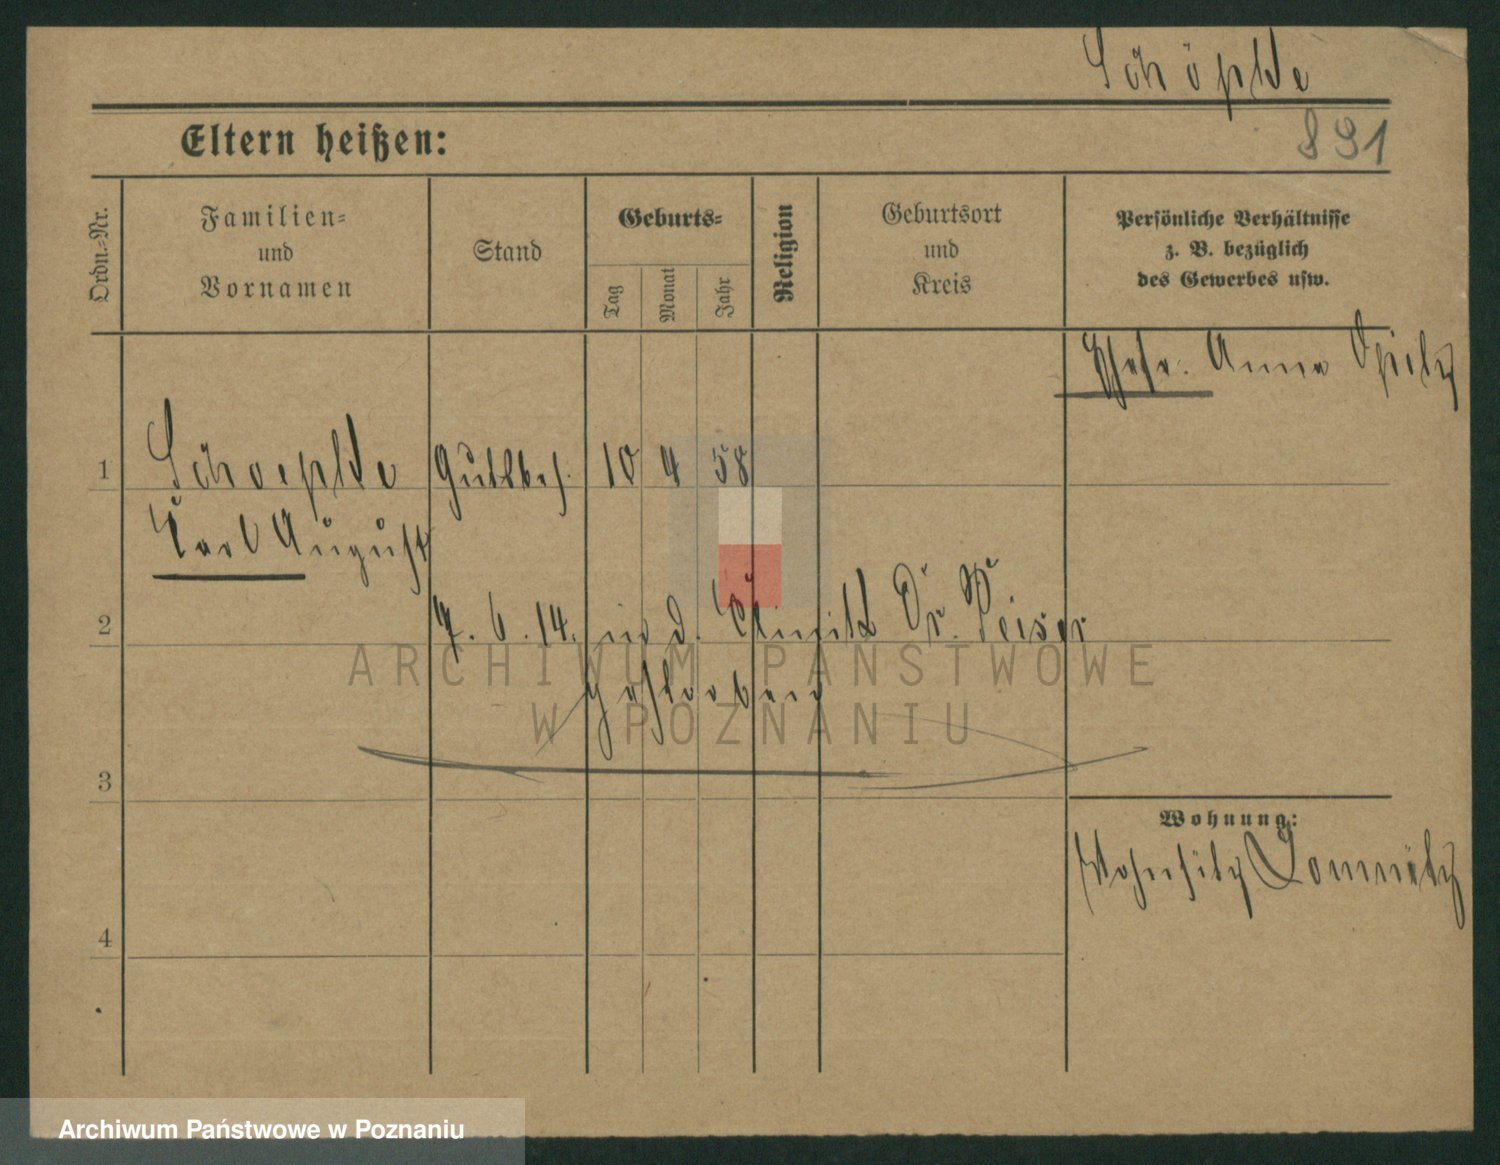 Schöpke
Eltern heißen:
891
Ordn.-Nr.
Familien-
und
Vornamen
Stand
Geburts-
Tag
Monat
Jahr
Religion
Geburtsort
und
Kreis
Persönliche Verhältnisse
z. B. bezüglich
des Gewerbes usw.
Ehefr. Anna Opitz
1 Schoepke Gutsbes. 10 4 58
Carl August
2 7. 6. 14. in d. Clinik Dr. Peiser
gestorben
3
Wohnung:
Wohnsitz
4
ARCHIWUM PAŃSTWOWE
W POZNANIU
Archiwum Państwowe w Poznaniu